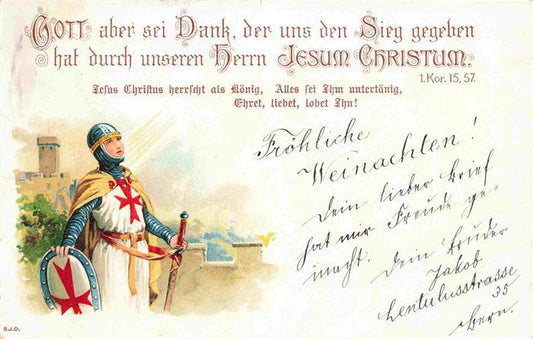 GOTT aber sei Dank, der uns den Sieg gegeben
hat durch unseren Herrn JESUM CHRISTUM.
1. Kor. 15, 57.
Jesus Christus herrscht als König, Alles sei Ihm untertänig,
Ehret, liebet, lobet Ihn!
Fröhliche
Weinachten!
Dein lieber Brief
hat mir Freude ge-
macht. Dein Bruder
Jakob
Lentulusstrasse
35
Bern.
S.J.D.